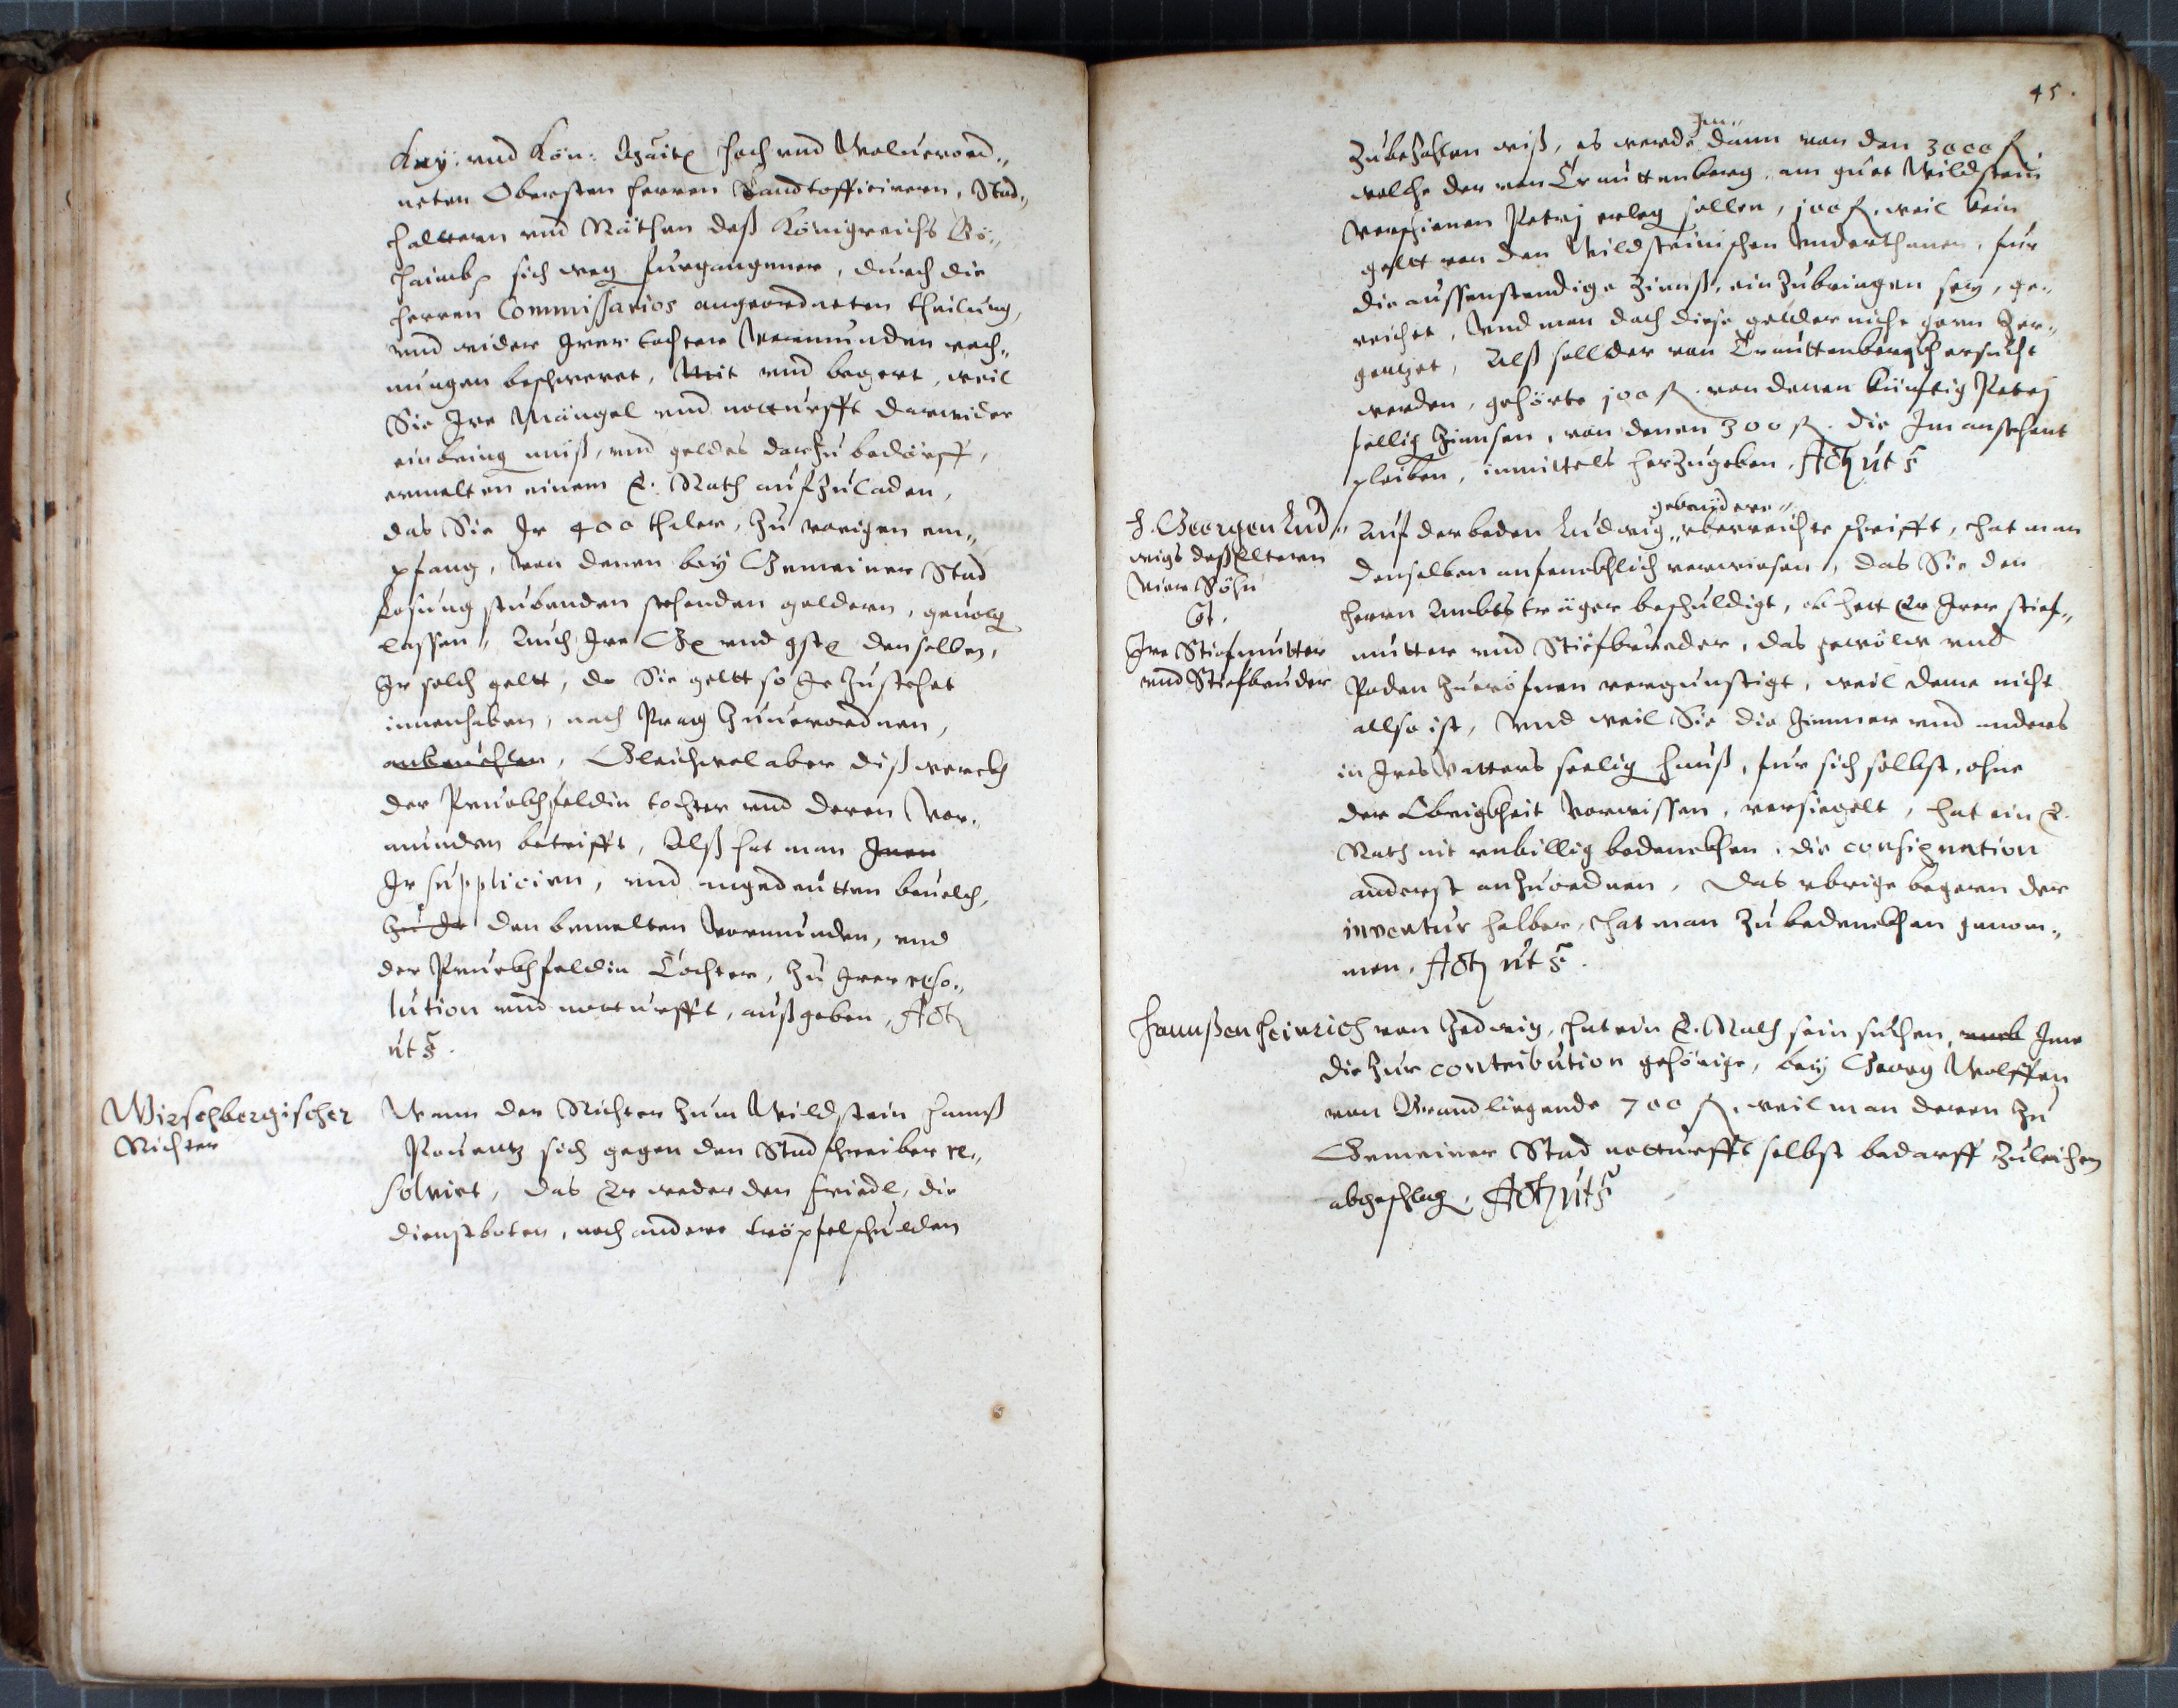 Kay: vnd Kön: Mayt: hoch vnd Wolverord„
neten Obersten herren Landtofficirern, Stad„
haltern vnd Räthen deß Königreichs Bö„
haimb, sich weg furgangener, durch die
herren Commissarios angeordneten theilung,
vnd wider Irer tochter Vormunden rech„
nungen beschweret, Mit vnd begert, weil
Sie Ire Mängel vnd notturfft darwider
einbring muß, vnd geldes darzu bedörff,
ermelten einem E. Rath aufzuladen,
das Sie Ir 400 thaler, zu vorigen em„
pfang, von denen bey Gemeiner Stad
Losungstuben stehenden geldern, geuolg
lassen, Auch Ire vnd denselben,
Ir solch geltt, da Sie geltt so Ir zustehet
innenhaben, nach Prag zuuerordnen,
anbeuehlen, Gleichwol aber diß werckh
der Pruckhfeldin tochter vnd deren Vor„
munden betrifft, Alß hat man Inen
Ir supplicirn, vnd angedeutten beuelch,
zu Ir den bemelten Vormunden, vnd
der Pruckhfeldin Tochter, zu Irer reso„
lution vnd notturfft, außgeben, Act
ut s.
Wirschbergischer
Richter
Wann der Richter zum Wildstein Hannß
sich gegen den Stadschreiber re„
solvirt, das Er weder den Friedl, die
dienstboten, noch andere tröpfelschulden
45.
zubezahlen wiß, es werde Im dann von den 3000 fl.
welche der von Trauttenberg, am guet Wildstein
verschienen Petrj erleg sollen, 100 fl. weil kein
geltt von den Wildsteinischen Vnderthanen, fur
die aussenstendige Zinnß, einzubringen sey, ge„
reichet, Vnd man doch diese gelder nicht gern zer„
gentzet, Alß soll der von Trauttenberg ersucht
werden, gehörte 100 fl. von denen künftig Petrj
fellig Zinnsen, von denen 300 fl. die Im anstehent
pleiben, inmittels herzugeben. Act ut s
H. Georgen Lud„
wigs deß Eltern
Vier Söhn
Ct.
Ire Stiefmutter
vnd Stiefbruder
Auf der beden Ludwig gebrüdere„ vberreichte schrifft, hat man
denselben anfencklich verwiesen, das Sie den
herrn Ambtsträger beschuldigt, alß hett Er Irer stief„
mutter vnd Stiefbruder, das gewölw vnd
Poden zueröfnen vergunstigt, weil deme nicht
also ist, Vnd weil Sie die Zimmer vnd anders
in Ires Vatters seelig hauß, fur sich selbst, ohne
der Obrigkheit Vorwissen, versiegelt, hat ein E.
Rath nit vnbillig bedenckhen, die consignation
anderst anzuordnen, Das vbrige begern der
inventur halber, hat man zu bedenckhen genom„
men, Act ut s.
Hannßen Heinrich von Zedwiz, hat ein E. Rath sein suchen, Ime
die zur contribution gehörige, bey Georg Wolffen
von Brand liegende 700 fl. weil man deren zu
Gemeiner Stad notturfft selbst bedarff zuleihen
abgeschlag, Act ut s